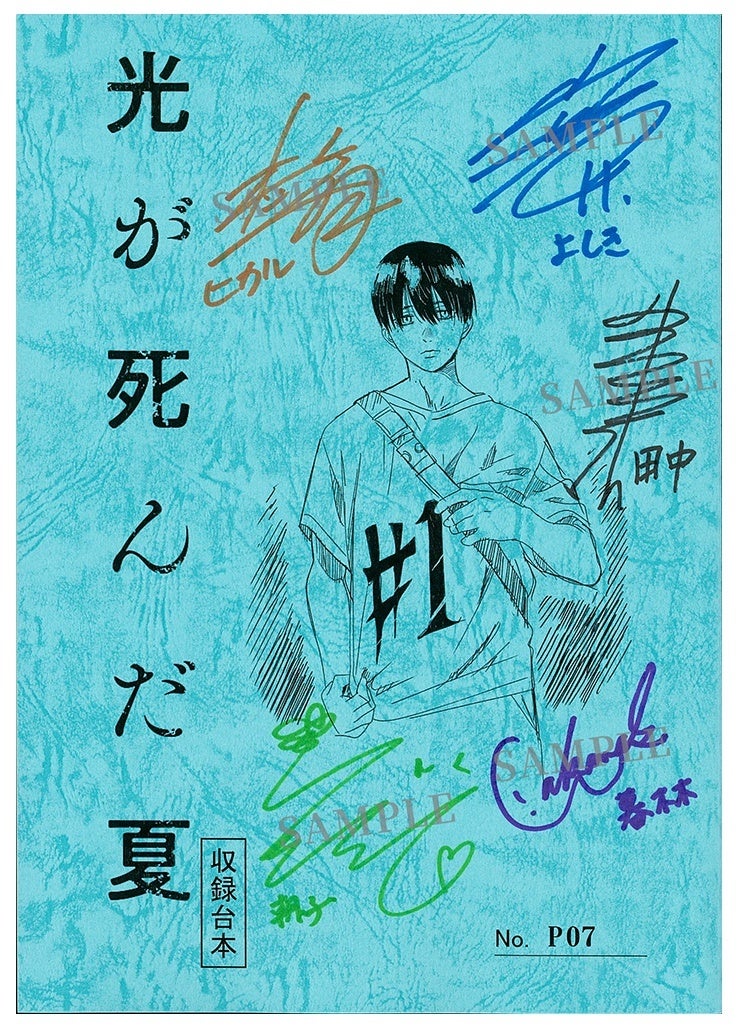 光が死んだ夏
収録台本
SAMPLE
ヒカル
SAMPLE
H.
よしき
SAMPLE
田中
#1
SAMPLE
朝子
SAMPLE
暮林
No. P07